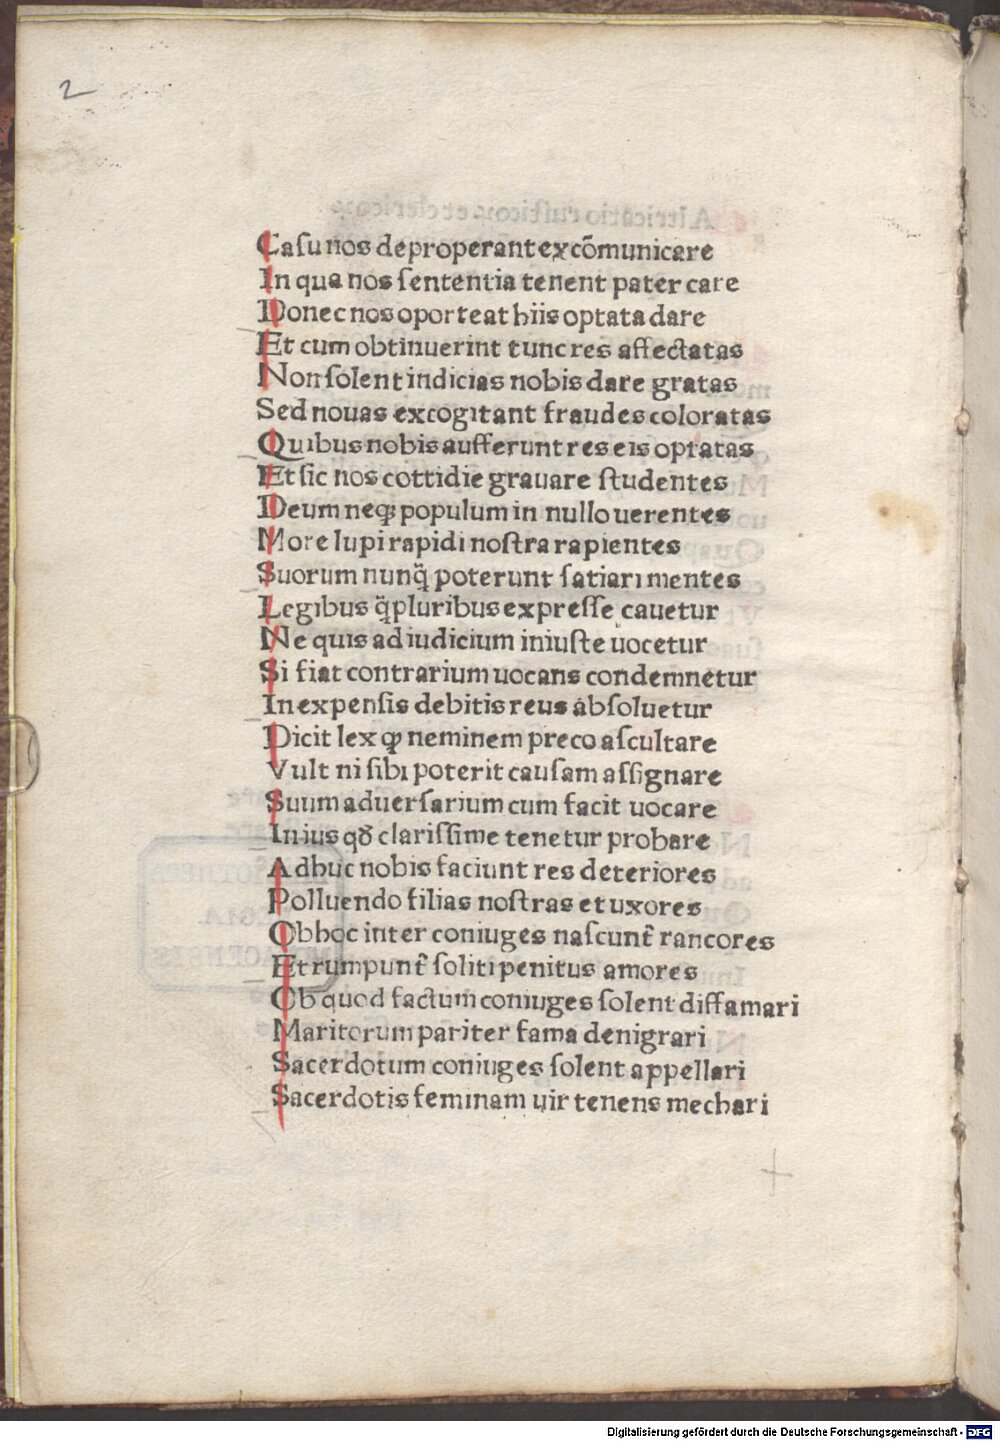 2
Casu nos de properant excōmunicare
In qua nos ſententia tenent pater care
Donec nos oporteat hiis optata dare
Et cum obtinuerint tunc res affectatas
Non ſolent indicias nobis dare gratas
Sed nouas excogitant fraudes coloratas
Quibus nobis aufferunt res eis optatas
Et ſic nos cottidie grauare ſtudentes
Deum neqꝫ populum in nullo uerentes
More lupi rapidi noſtra rapientes
Suorum nunq̄ poterunt ſatiari mentes
Legibus q̄ pluribus expreſſe cauetur
Ne quis ad iudicium iniuſte uocetur
Si fiat contrarium uocans condemnetur
In expenſis debitis reus abſoluetur
Dicit lex ꝙ neminem preco aſcultare
Vult ni ſibi poterit cauſam aſſignare
Suum aduerſarium cum facit uocare
In ius qď clariſſime tenetur probare
Adhuc nobis faciunt res deteriores
Polluendo filias noſtras et uxores
Ob hoc inter coniuges naſcunt̄ rancores
Et rumpunt̄ ſoliti penitus amores
Ob quod factum coniuges ſolent diffamari
Maritorum pariter fama denigrari
Sacerdotum coniuges ſolent appellari
Sacerdotis feminam uir tenens mechari
Digitalisierung gefördert durch die Deutsche Forschungsgemeinschaft - DFG